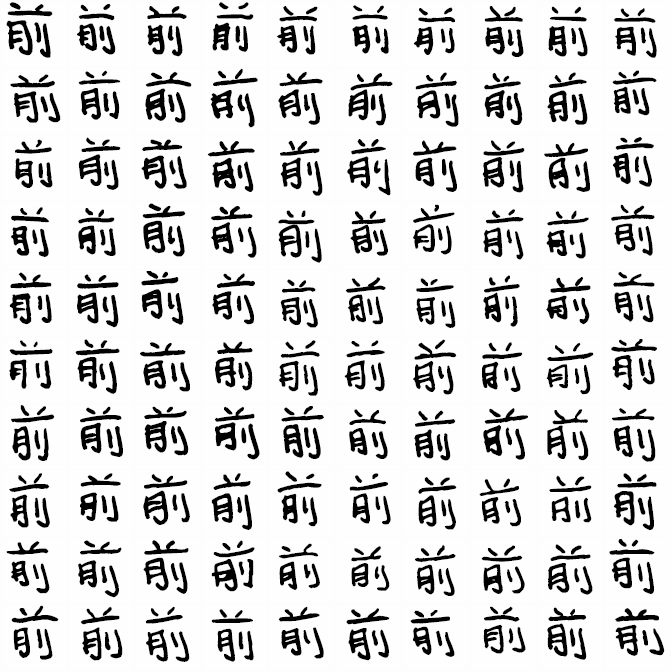 前前前前前前前前前前
前前前前前前前前前前
前前前前前前前前前前
前前前前前前前前前前
前前前前前前前前前前
前前前前前前前前前前
前前前前前前前前前前
前前前前前前前前前前
前前前前前前前前前前
前前前前前前前前前前